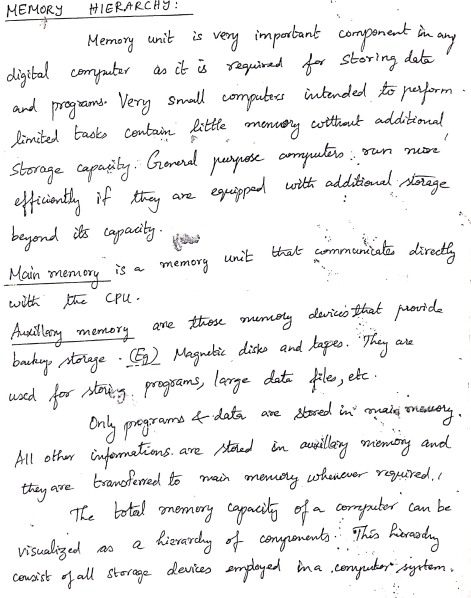 MEMORY HIERARCHY:
Memory unit is very important component in any
digital computer as it is required for storing data
and programs. Very small computers intended to perform
limited tasks contain little memory without additional
storage capacity. General purpose computers run more
efficiently if they are equipped with additional storage
beyond its capacity.
Main memory is a memory unit that communicates directly
with the CPU.
Auxillary memory are those memory devices that provide
backup storage. (Eg) Magnetic disks and tapes. They are
used for storing programs, large data files, etc.
Only programs & data are stored in main memory.
All other informations are stored in auxillary memory and
they are transferred to main memory whenever required.
The total memory capacity of a computer can be
visualized as a hierarchy of components. This hierarchy
consist of all storage devices employed in a computer system.